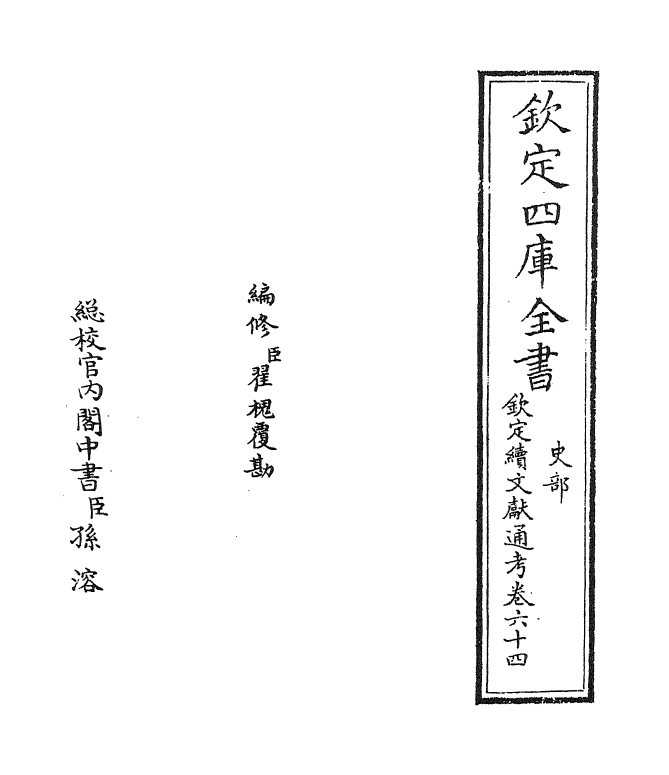 欽定四庫全書
史部
欽定續文獻通考卷六十四
編修臣翟槐覆勘
總校官内閣中書臣孫溶